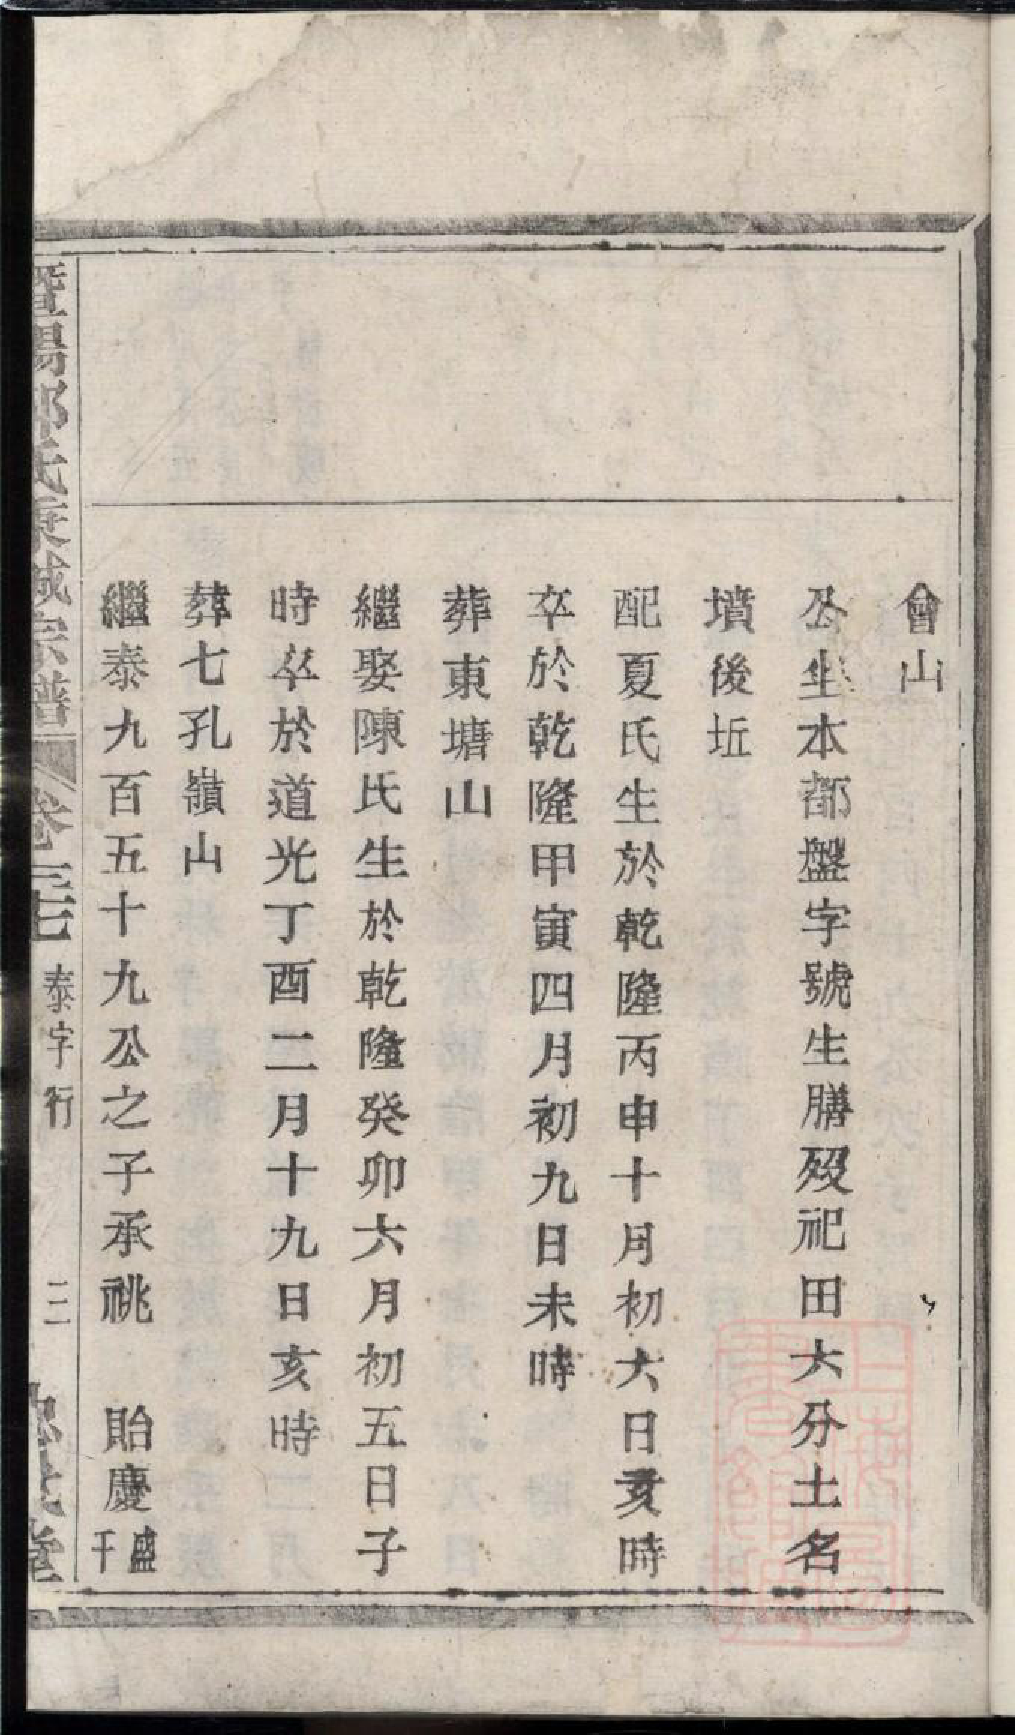 會山
公坐本都盤字號生膳歿祀田六分土名
墳後坵
配夏氏生於乾隆丙申十月初六日亥時
卒於乾隆甲寅四月初九日未時
葬東塘山
繼娶陳氏生於乾隆癸卯六月初五日子
時卒於道光丁酉二月十九日亥時
葬七孔嶺山
繼泰九百五十九公之子承祧 貽慶盛千
暨陽 氏 宗譜 卷 泰字行 三 堂